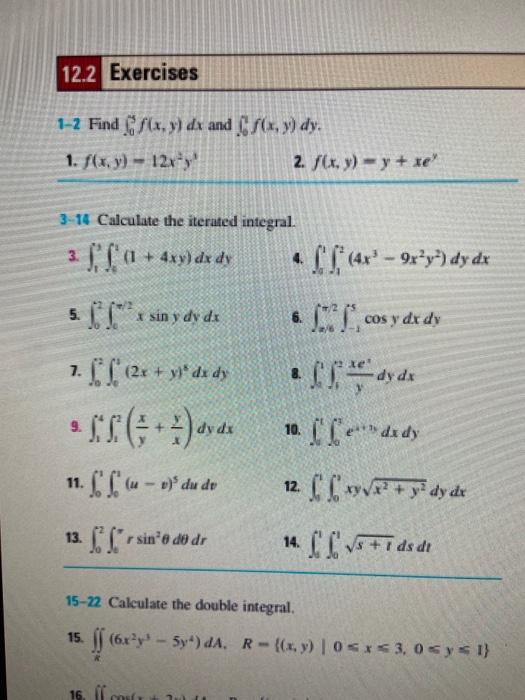 12.2 Exercises
1–2 Find ∫₀⁵ f(x, y) dx and ∫₀¹ f(x, y) dy.
1. f(x, y) = 12x²y³ 2. f(x, y) = y + xeʸ
3–14 Calculate the iterated integral.
3. ∫₁³ ∫₀¹ (1 + 4xy) dx dy 4. ∫₀¹ ∫₁² (4x³ − 9x²y²) dy dx
5. ∫₀² ∫₀^(π/2) x sin y dy dx 6. ∫_(π/6)^(π/2) ∫₋₁⁵ cos y dx dy
7. ∫₀² ∫₀¹ (2x + y)⁸ dx dy 8. ∫₀¹ ∫₁² xeˣ/y dy dx
9. ∫₁⁴ ∫₁² (x/y + y/x) dy dx 10. ∫₀¹ ∫₀³ e^(x+3y) dx dy
11. ∫₀¹ ∫₀¹ (u − v)⁵ du dv 12. ∫₀¹ ∫₀¹ xy√(x² + y²) dy dx
13. ∫₀² ∫₀^π r sin²θ dθ dr 14. ∫₀¹ ∫₀¹ √(s + t) ds dt
15–22 Calculate the double integral.
15. ∬_R (6x²y³ − 5y⁴) dA, R = {(x, y) | 0 ≤ x ≤ 3, 0 ≤ y ≤ 1}
16. ∬